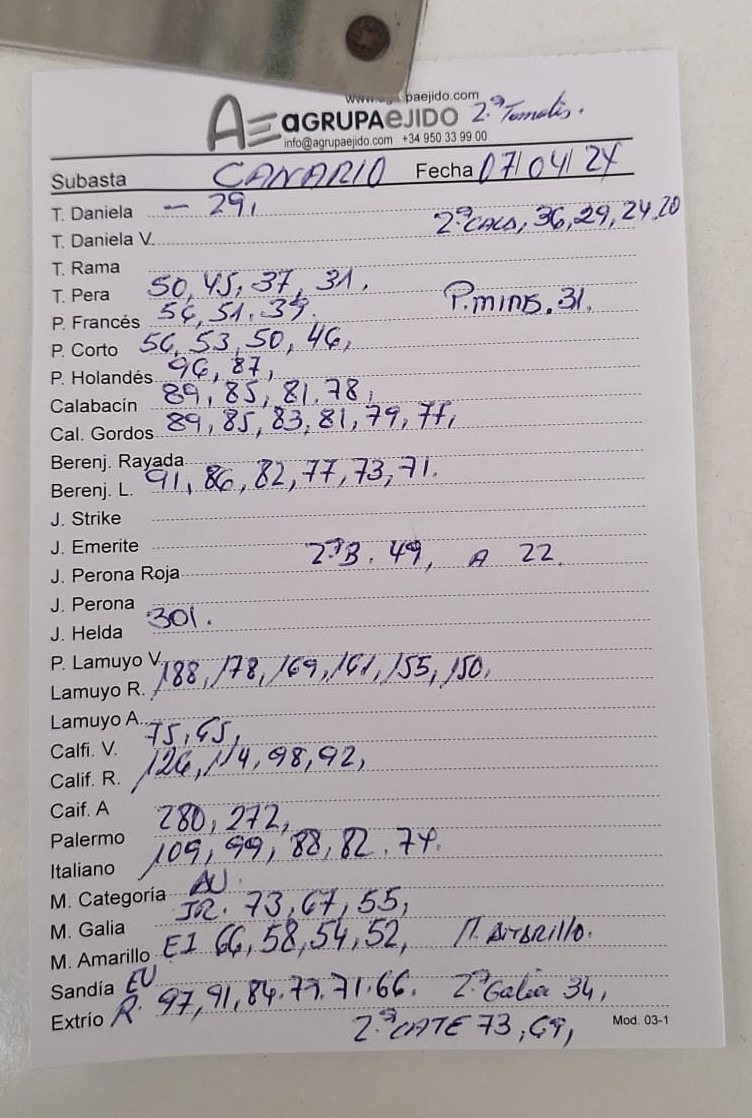 paejido.com
2ª Tomates.
AGRUPAEJIDO
info@agrupaejido.com +34 950 33 99 00
Subasta CANARIO Fecha 07/04/24
T. Daniela - 29,
2ª CALA, 36, 29, 24, 20
T. Daniela V.
T. Rama
T. Pera 50, 45, 37, 31.
P. Francés 56, 51. 39. P. mins. 31.
P. Corto 56, 53, 50, 46,
P. Holandés 96, 87,
Calabacín 89, 85, 81. 78,
Cal. Gordos 89, 85, 83, 81, 79, 77,
Berenj. Rayada
Berenj. L. 91, 86, 82, 77, 73, 71.
J. Strike
J. Emerite
J. Perona Roja 2ªB. 49, A 22.
J. Perona
J. Helda 301.
P. Lamuyo V.
Lamuyo R. 188, 178, 169, 161, 155, 150,
Lamuyo A.
Calfi. V. 75, 65,
Calif. R. 126, 114, 98, 92,
Caif. A
Palermo 280, 272,
Italiano 109, 99, 88, 82. 74.
M. Categoría AU.
M. Galia JR. 73, 67, 55,
M. Amarillo EI 66, 58, 54, 52, M. Amarillo.
Sandía EU
Extrio R. 97, 91, 84. 79. 71. 66. 2ª Galia 34,
2ª CATE 73, 69,
Mod. 03-1